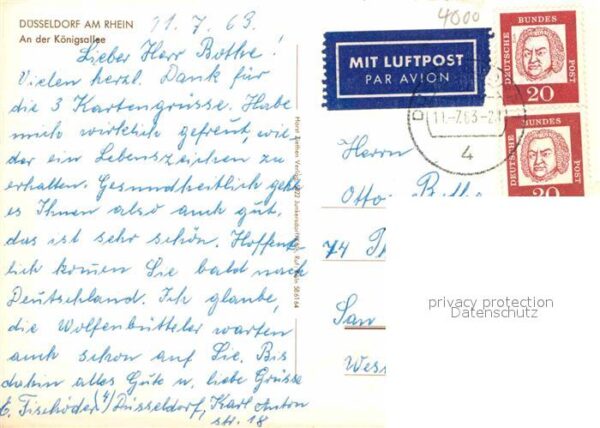 DÜSSELDORF AM RHEIN
An der Königsallee
11. 7. 63.
Lieber Herr Bothe!
Vielen herzl. Dank für
die 3 Kartengrüsse. Habe
mich wirklich gefreut, wie-
der ein Lebenszeichen zu
erhalten. Gesundheitlich geht
es Ihnen also auch gut,
das ist sehr schön. Hoffent-
lich kommen Sie bald nach
Deutschland. Ich glaube,
die Wolfenbütteler warten
auch schon auf Sie. Bis
dahin alles Gute u. liebe Grüsse
E. Fischöder, 4) Düsseldorf, Karl Anton
str. 18
4000
MIT LUFTPOST
PAR AVION
DEUTSCHE
BUNDES
POST
20
DEUTSCHE
BUNDES
POST
20
11.-7.63-2
4
Herrn
Otto
74
San
Wes
privacy protection
Datenschutz